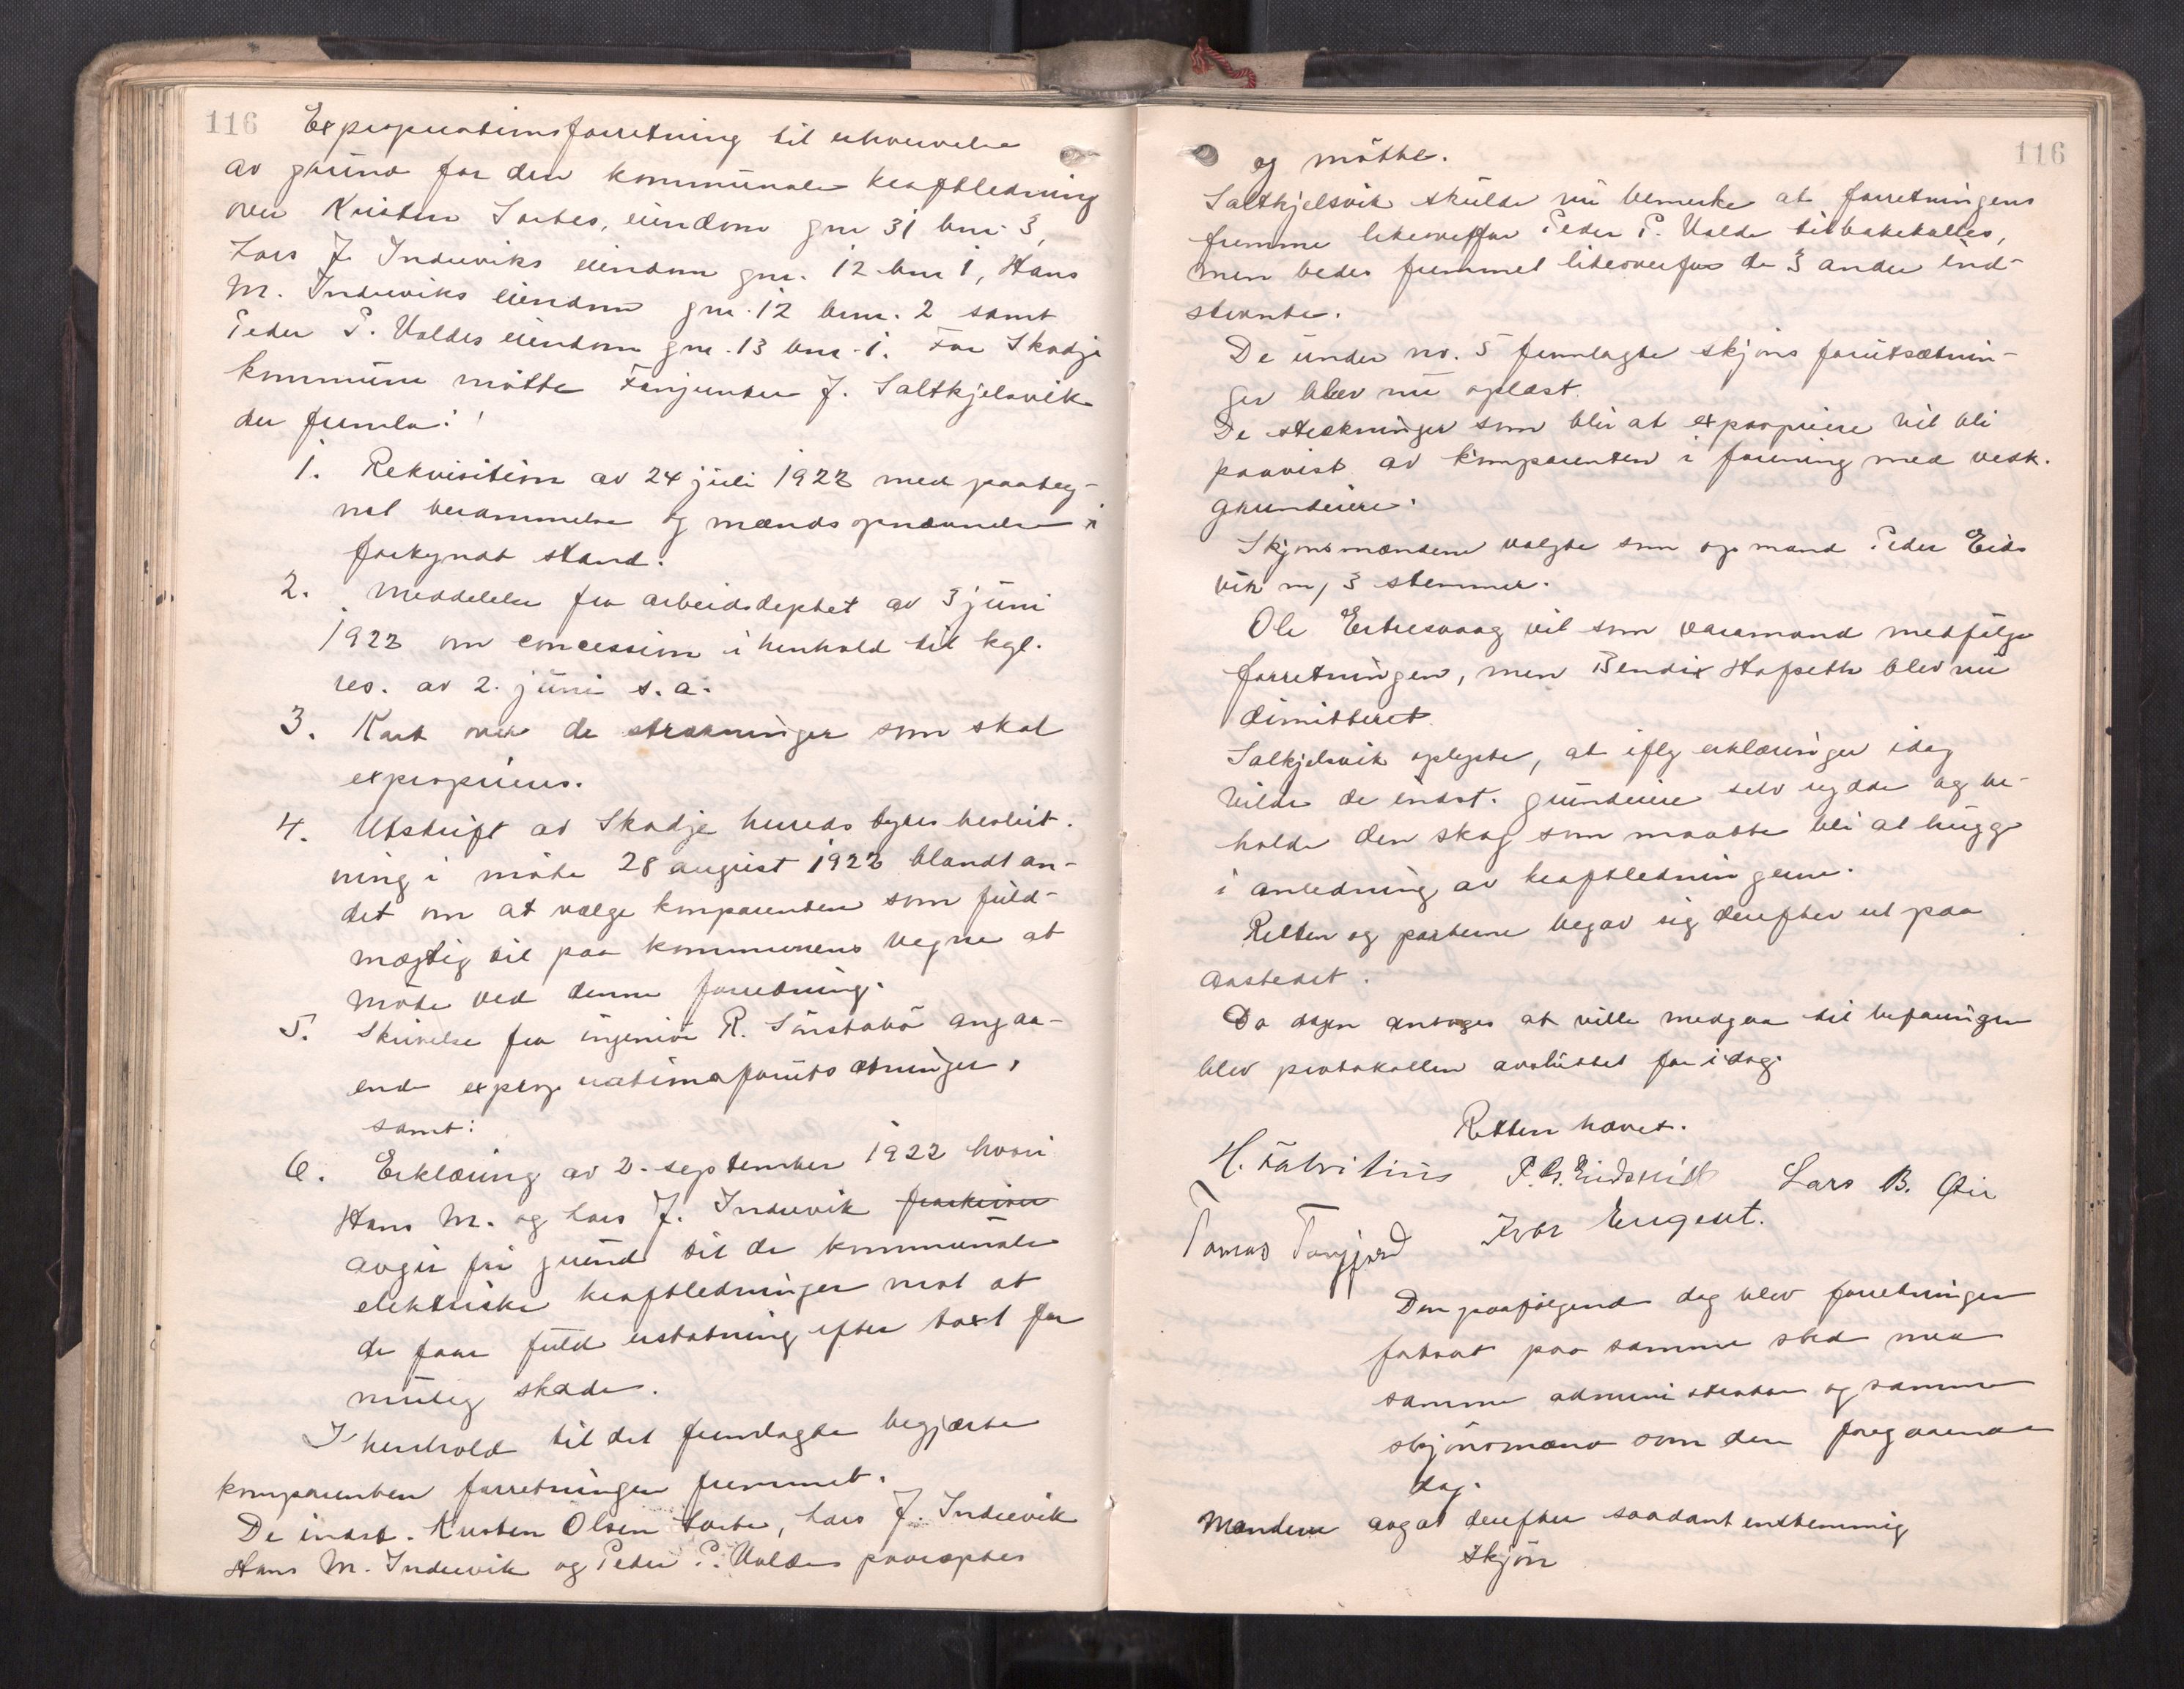 116
Expropriationsforretning til erhvervelse
av grund for den kommunale kraftledning
over Kristen Sortes, eiendom gnr 31 bnr. 3,
Lars J. Indreviks eiendom gnr. 12 bnr 1, Hans
M. Indreviks eiendom gnr. 12 bnr. 2 samt
Peder P. Valdes eiendom gnr. 13 bnr. 1. For Skodje
kommune møtte J. Saltkjelsvik
der fremla:
1. Rekvisition av 24 juli 1922 med paateg-
net berammelse og mændsopnævnelse i
forkyndt stand.
2. Meddelelse fra arbeidsdeptet av 3 juni
1922 om concession i henhold til kgl.
res. av 2. juni s. a.
3. Kart over de strækninger som skal
exproprieres.
4. Utskrift av Skodje hereds styres beslut-
ning i møte 28 august 1922 blandt an-
det om at vælge komparenten som fuld-
mægtig til paa kommunens vegne at
møte ved denne forretning.
5. Skrivelse fra ingeniør R. Sønstabø angaa-
ende expropriationsforutsætninger,
samt:
6. Erklæring av 2. september 1922 hvori
Hans M. og Lars J. Indrevik
avgir fri grund til de kommunale
elektriske kraftledninger mot at
de faar fuld erstatning efter taxt for
mulig skade.
I henhold til det fremlagte begjærte
komparenten forretningen fremmet.
De indst. Kristen Olsen Sorte, Lars J. Indrevik
Hans M. Indrevik og Peder P. Valde paaroptes
116
og møtte.
Saltkjelsvik skulde nu bemerke at forretningens
fremme likeoverfor Peder P. Valde tilbakekalles,
men bedes fremmet likeoverfor de 3 andre ind-
stevnte.
De under no. 5 fremlagte skjøns forutsætnin-
ger blev nu oplæst.
De strekninger som blir at expropriere vil bli
paavist av komparenten i forening med vedk.
grundeiere.
Skjønsmændene valgte som opmand Peder Eids
vik m/ 3 stemmer.
Ole Ertresvaag vil som varamand medfølge
forretningen, men Bendix Hofseth blev nu
dimitteret.
Salkjelsvik oplyste, at iflg erklæringer idag
vilde de indst. grundeiere selv rydde og be-
holde den skog som maatte bli at hugge
i anledning av kraftledningerne.
Retten og parterne begav sig derefter ut paa
aastedet.
Da dagen antages at ville medgaa til befaringen
blev protokollen avsluttet for idag.
Retten hævet.
H. Fabritius P. B. Eidsvik Lars B. Øie
Tomas Ivar Engeset.
Den paafølgende dag blev forretningen
fortsat paa samme sted med
samme administrator og samme
skjønsmænd som den foregaaende
dag.
Mændene avgav derefter saadant enstemmig
Skjøn